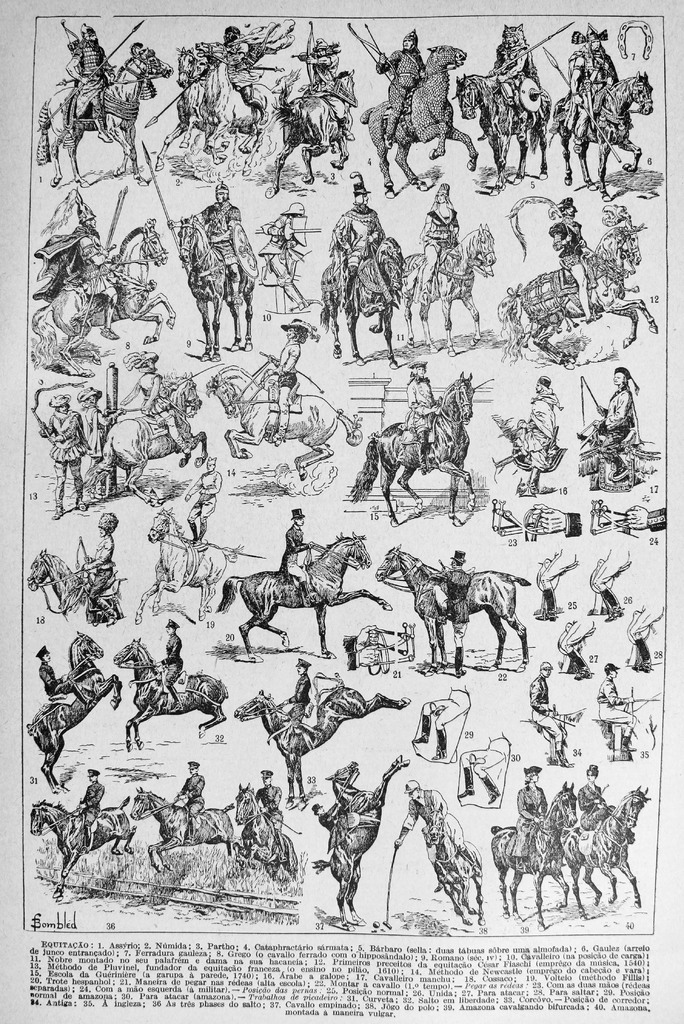 1
2
3
4
5
6
7
8
9
10
11
12
13
14
15
16
17
18
19
20
21
22
23
24
25
26
27
28
29
30
31
32
33
34
35
36
37
38
39
40
Bombled
EQUITAÇÃO: 1. Assýrio; 2. Númida; 3. Partho; 4. Cataphractário sármata; 5. Bárbaro (sella: duas tábuas sôbre uma almofada); 6. Gaulez (arreio
de junco entrançado); 7. Ferradura gauleza; 8. Grego (o cavallo ferrado com o hipposândalo); 9. Romano (séc. IV); 10. Cavalleiro (na posição de carga);
11. Nobre montado no seu palafrém e dama na sua hacaneia; 12. Primeiros preceitos da equitação César Fiaschi (emprêgo da música, 1540);
13. Méthodo de Pluvinel, fundador da equitação franceza (o ensino no pilão, 1610); 14. Méthodo de Newcastle (emprêgo do cabeção e vara);
15. Escola da Guérinière (a garupa à parede, 1740); 16. Árabe a galope; 17. Cavalleiro manchu; 18. Cossaco; 19. Volteio (méthodo Fillis)
20. Trote hespanhol; 21. Maneira de pegar nas rédeas (alta escola); 22. Montar a cavallo (1.º tempo). — Pegar as rédeas: 23. Com as duas mãos (rédeas
separadas); 24. Com a mão esquerda (à militar). — Posição das pernas: 25. Posição normal; 26. Unida; 27. Para atacar; 28. Para saltar; 29. Posição
normal de amazona; 30. Para atacar (amazona). — Trabalhos de picadeiro: 31. Curveta; 32. Salto em liberdade; 33. Corcôvo. — Posição de corredor;
34. Antiga; 35. À ingleza; 36 As três phases do salto; 37. Cavallo empinado; 38. Jôgo do polo; 39. Amazona cavalgando bifurcada; 40. Amazona,
montada à maneira vulgar.